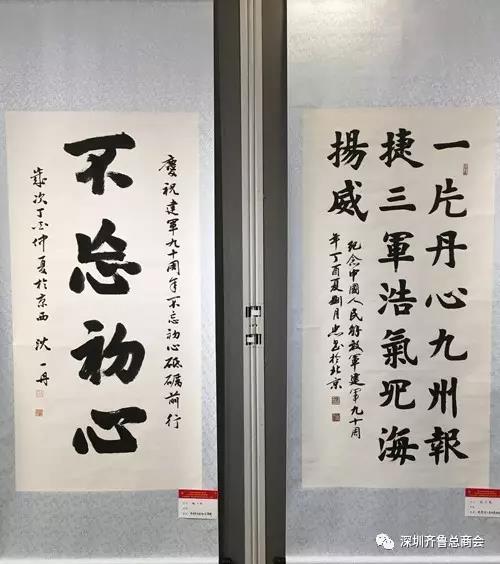 慶祝建軍九十周年不忘初心砥砺前行
不忘初心
歲次丁酉仲夏於京西 沈一丹
一片丹心九州報
捷三軍浩氣四海
揚威
紀念中國人民解放軍建軍九十周
年丁酉夏月忠書於北京
深圳齐鲁总商会